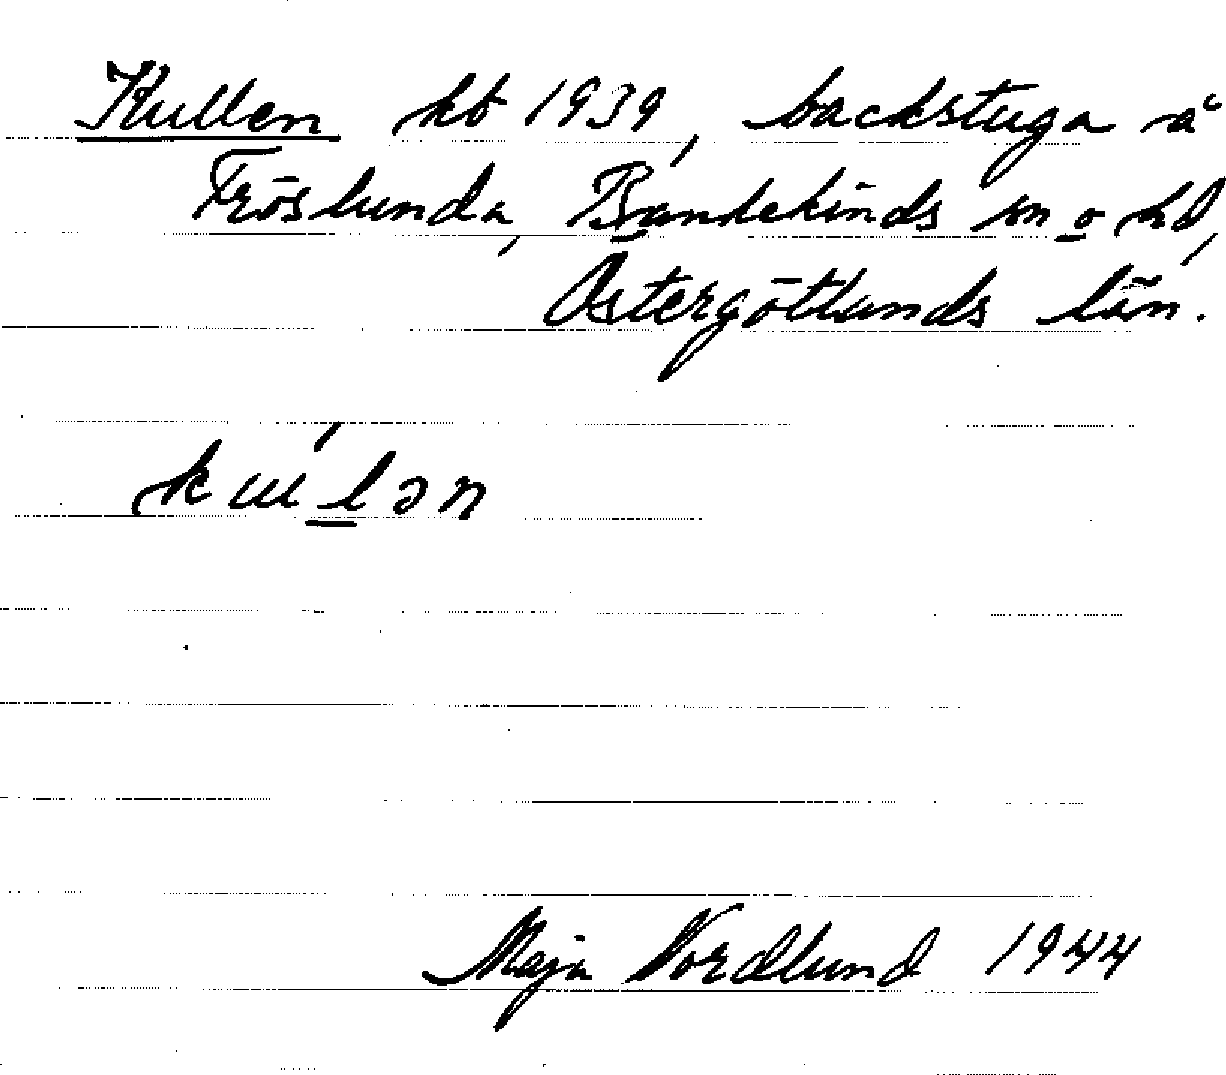 Kullen kb 1939, backstuga å
Fröslunda, Bankekinds sn o hd,
Östergötlands län.
kuḷ́ən
Maja Nordlund 1944